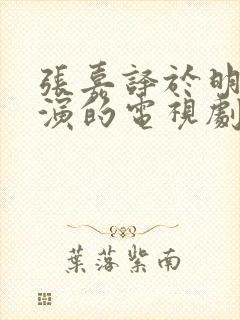 張嘉譯於明
演的電視劇
葉落紫南